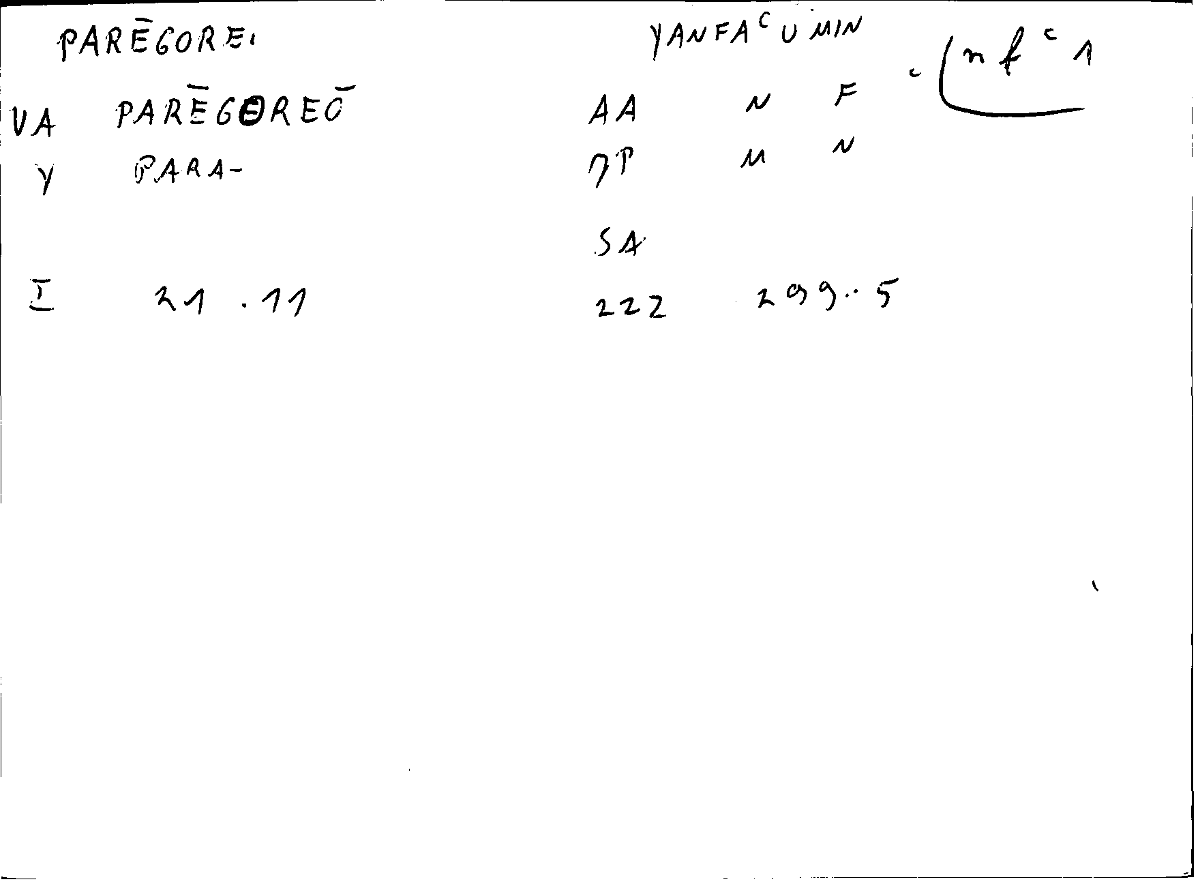 PARĒGOREI YANFAᶜUMIN
ᶜ(nfᶜ1
VA PARĒGOREŌ AA N F
Y PARA- P M N
SA
I 21.11 222 299..5